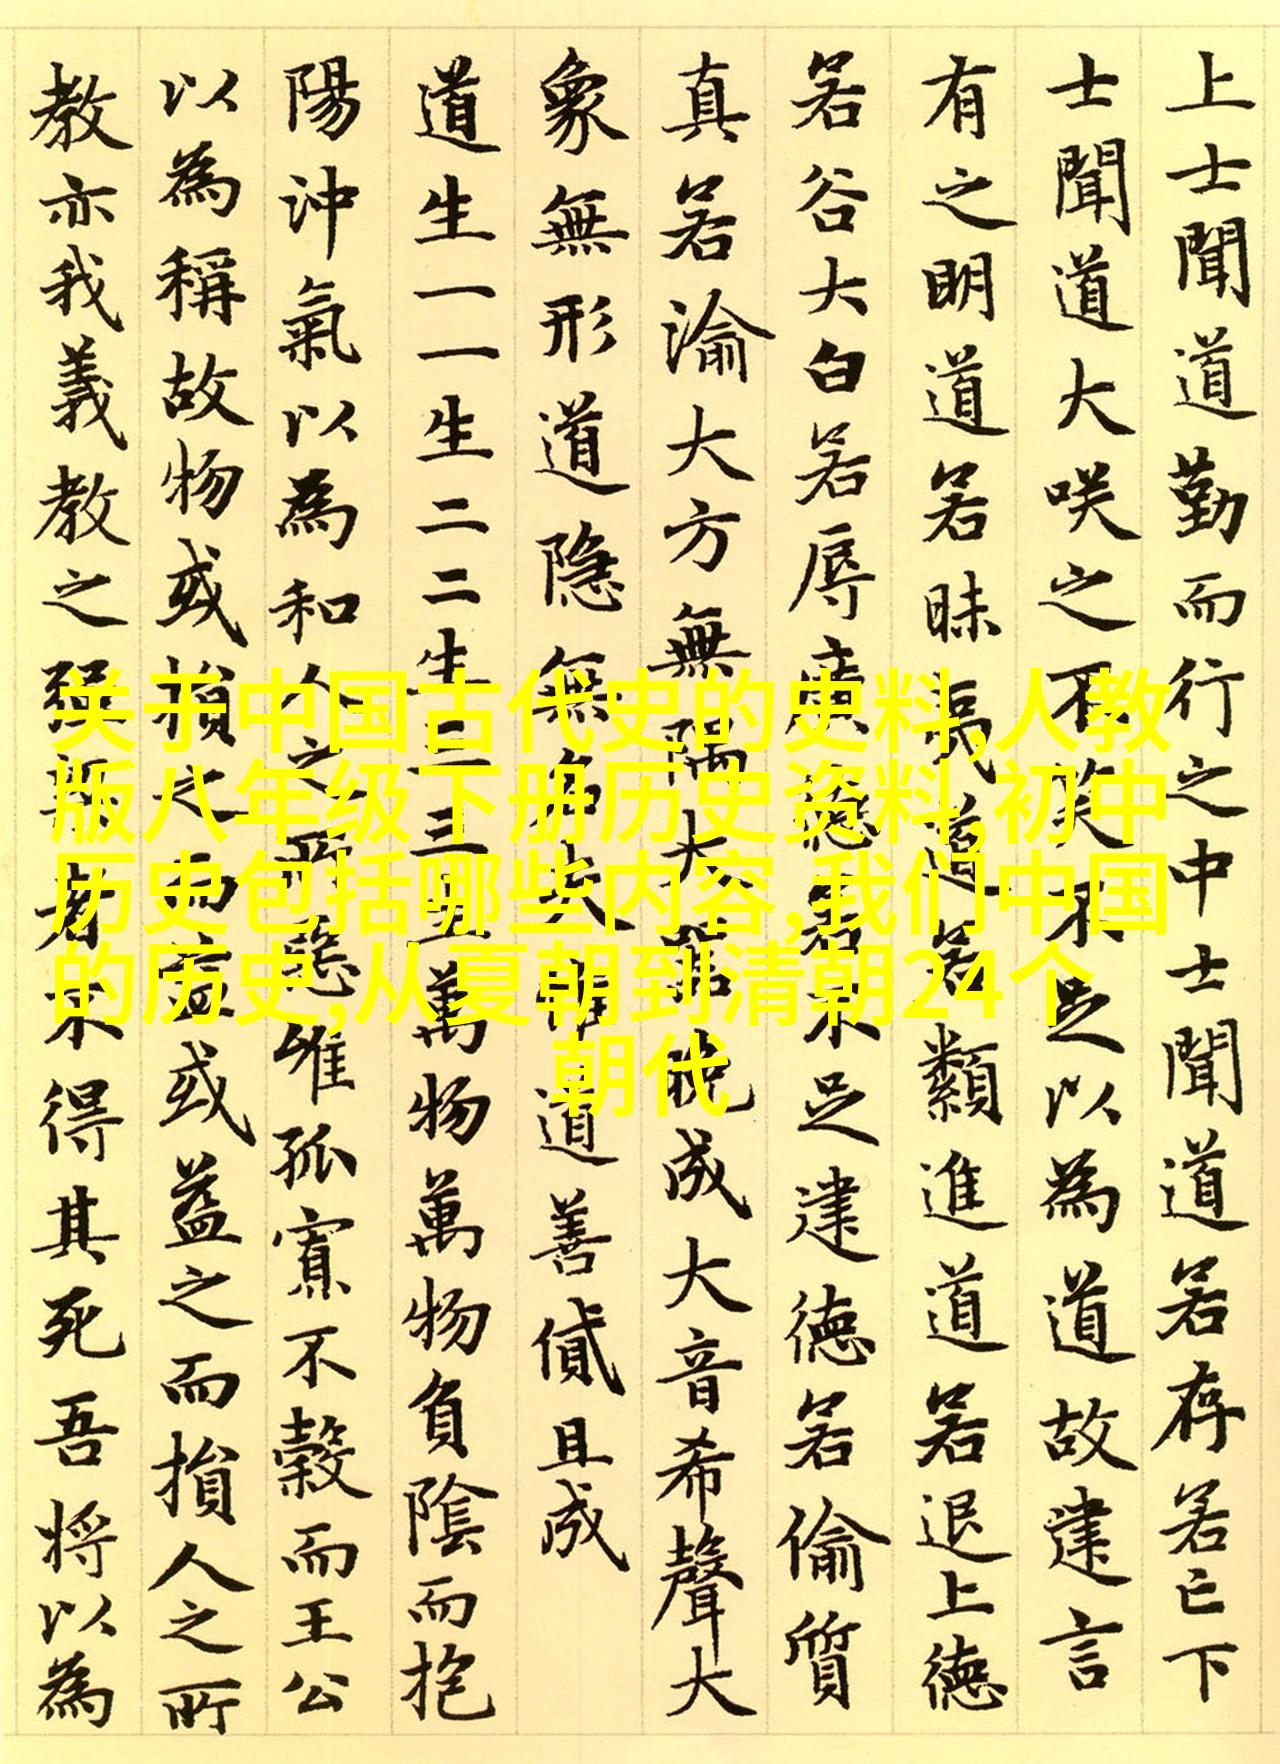 上士聞道勤而行之中士聞道若存若亡下
士聞道大咲之不笑不足以為道故建言
有之明道若昧夷道若纇進道若退上德
若谷大白若辱廣德若不足建德若偷質
真若渝大方無隅大器晚成大音希聲大
象無形道隐無名夫唯道善貸且成
道生一一生二二生三三生萬物萬物負陰而抱
陽沖氣以為和人之所惡唯孤寡不穀而王公
以為稱故物或損之而益或益之而損人之所
教亦我義教之强梁者不得其死吾将以為
关于中国古代史的史料,人教
版八年级下册历史资料,初中
历史包括哪些内容,我们中国
的历史,从夏朝到清朝24个
朝代